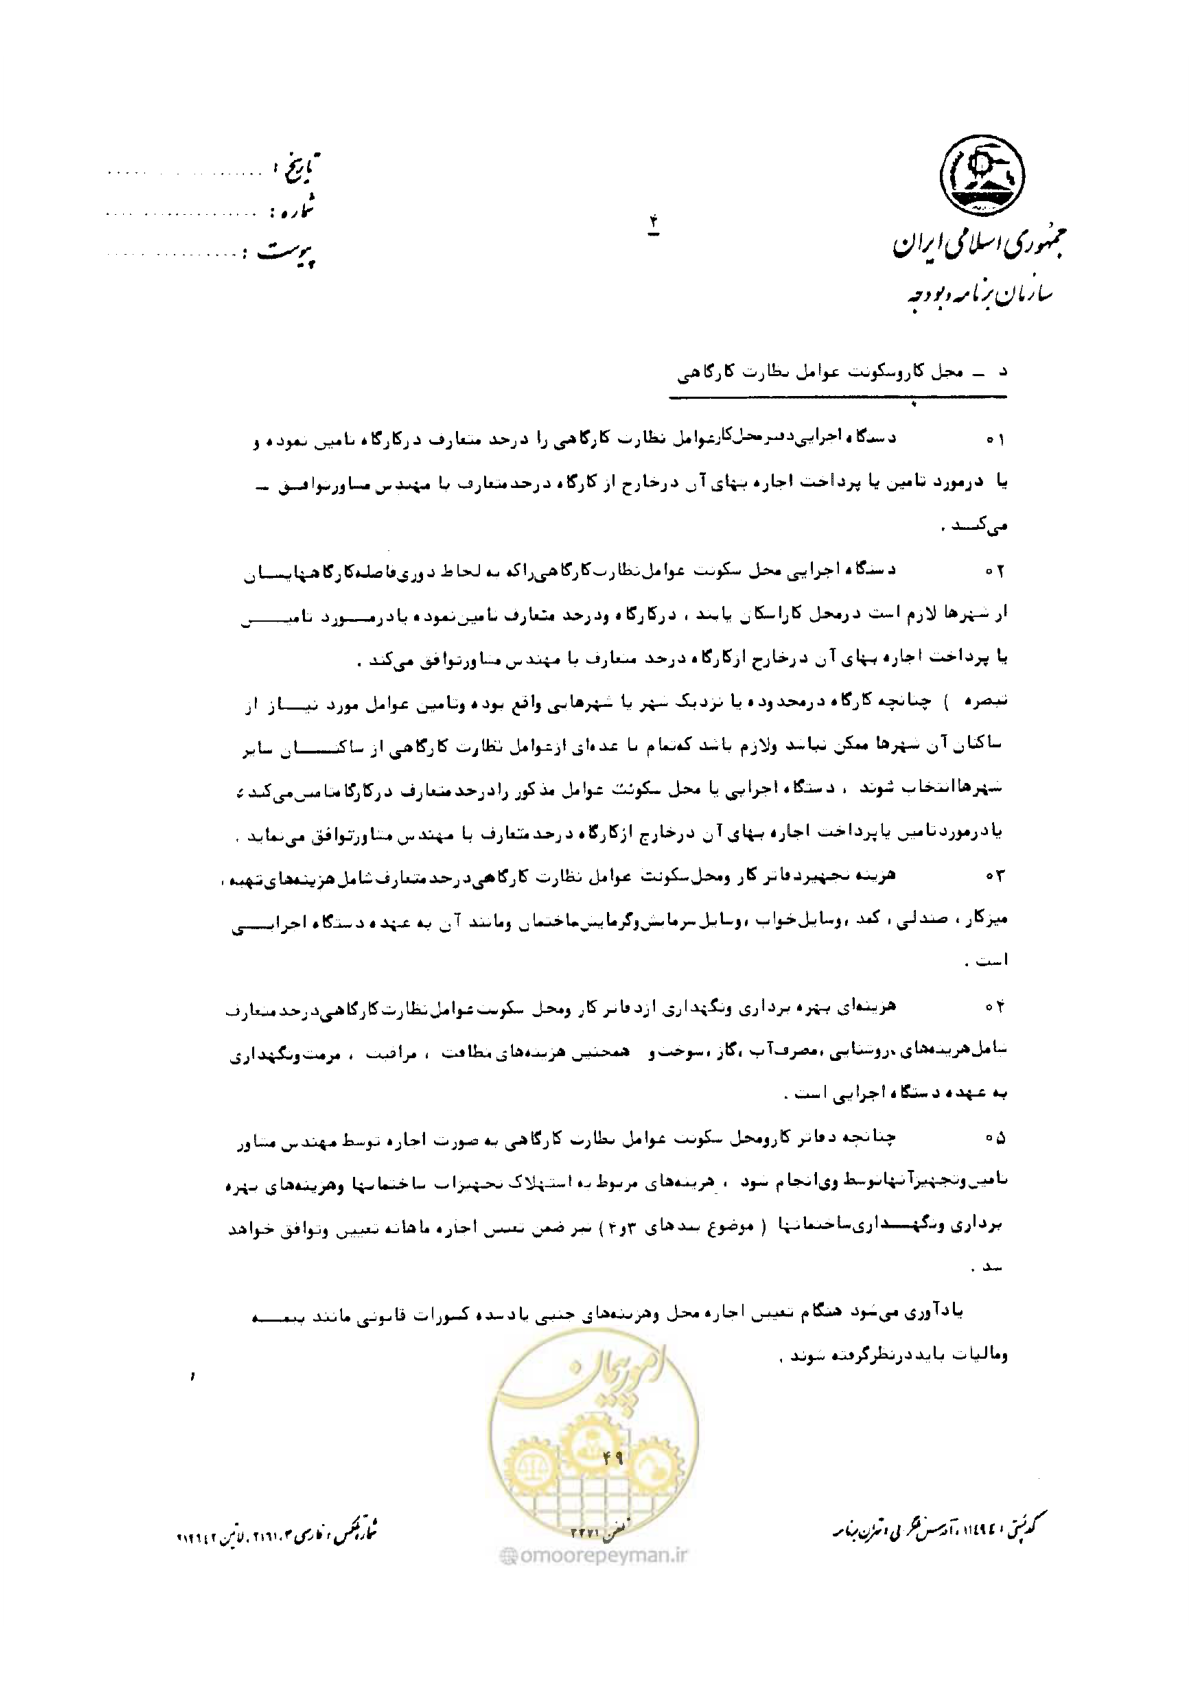 تاریخ :
شماره :
پیوست :
۴
جمهوری اسلامی ایران
سازمان برنامه و بودجه
د – محل کاروسکونت عوامل نظارت کارگاهی
۰۱ دستگاه اجرایی دفترمحل‌کارعوامل نظارت کارگاهی را درحد متعارف درکارگاه تامین نموده و
یا درمورد تامین یا پرداخت اجاره بهای آن درخارج از کارگاه درحدمتعارف با مهندس مشاورتوافق –
می‌کند .
۰۲ دستگاه اجرایی محل سکونت عوامل‌نظارت‌کارگاهی‌راکه به لحاظ دوری‌فاصله‌کارگاههایشان
از شهرها لازم است درمحل کاراسکان یابند ، درکارگاه ودرحد متعارف تامین‌نموده یادرمورد تامین
یا پرداخت اجاره بهای آن درخارج ازکارگاه درحد متعارف با مهندس مشاورتوافق می‌کند .
تبصره ) چنانچه کارگاه درمحدوده یا نزدیک شهر یا شهرهایی واقع بوده وتامین عوامل مورد نیاز از
ساکنان آن شهرها ممکن نباشد ولازم باشد که‌تمام یا عده‌ای ازعوامل نظارت کارگاهی از ساکنان سایر
شهرهاانتخاب شوند ، دستگاه اجرایی یا محل سکونت عوامل مذکور رادرحدمتعارف درکارگاه‌تامین‌می‌کند ،
یادرموردتامین یاپرداخت اجاره بهای آن درخارج ازکارگاه درحدمتعارف با مهندس مشاورتوافق می‌نماید .
۰۳ هزینه تجهیزدفاتر کار ومحل‌سکونت عوامل نظارت کارگاهی‌درحدمتعارف‌شامل‌هزینه‌های‌تهیه ،
میزکار ، صندلی ، کمد ،وسایل‌خواب ،وسایل‌سرمایش‌وگرمایش‌ساختمان ومانند آن به عهده دستگاه اجرایی
است .
۰۴ هزینه‌ای بهره برداری ونگهداری ازدفاتر کار ومحل سکونت‌عوامل‌نظارت‌کارگاهی‌درحدمتعارف
شامل‌هزینه‌های ،روشنایی ،مصرف‌آب ،گاز ،سوخت‌و همچنین هزینه‌های نظافت ، مراقبت ، مرمت‌ونگهداری
به عهده دستگاه اجرایی است .
۰۵ چنانچه دفاتر کارومحل سکونت عوامل نظارت کارگاهی به صورت اجاره توسط مهندس مشاور
تامین‌وتجهیزآنهاتوسط وی‌انجام شود ، هزینه‌های مربوط به استهلاک تجهیزات ساختمانها وهزینه‌های بهره
برداری ونگهداری‌ساختمانها ( موضوع بندهای ۳و۴ ) نیز ضمن تعیین اجاره ماهانه تعیین وتوافق خواهد
شد .
یادآوری می‌شود هنگام تعیین اجاره محل وهزینه‌های جنبی یادشده کسورات قانونی مانند بیمه
ومالیات بایددرنظرگرفته شوند .
امور پیمان
۴۹
کد پستی : ۱۱۴۹۴،
تلفن ۳۲۷۱
@omoorepeyman.ir